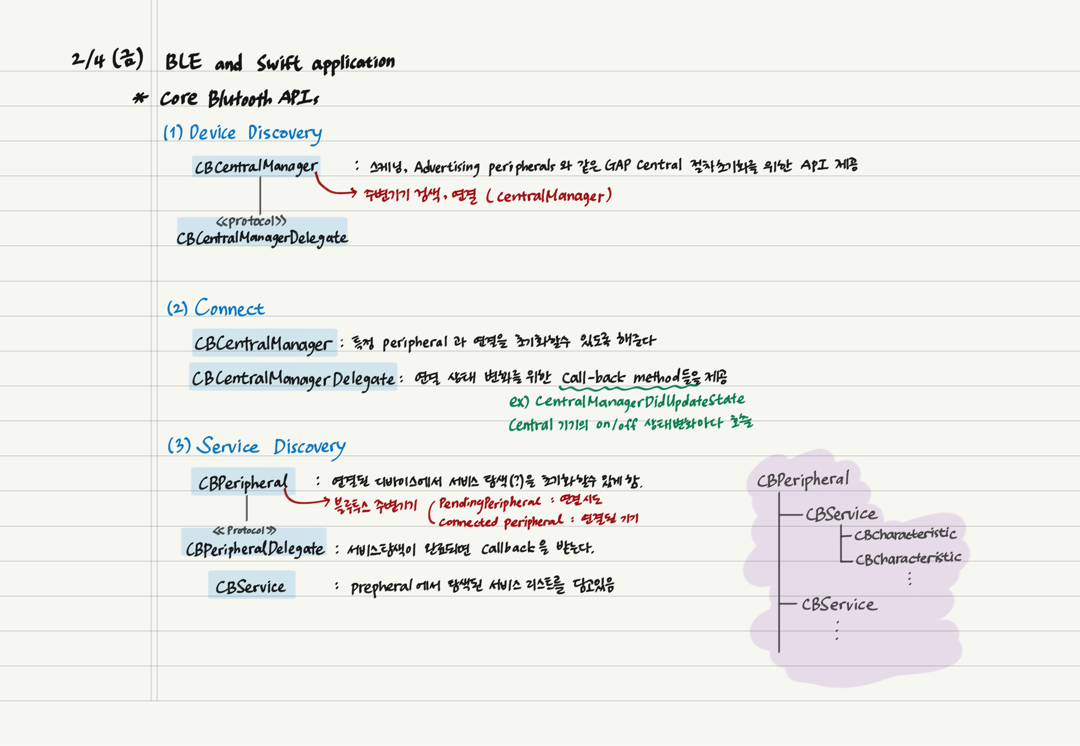 2/4 (금) BLE and Swift application
* Core Blutooth APIs
(1) Device Discovery
CBCentralManager : 스캐닝, Advertising peripherals 와 같은 GAP Central 절차초기화를 위한 API 제공
주변기기 검색, 연결 (CentralManager)
<<protocol>>
CBCentralManagerDelegate
(2) Connect
CBCentralManager : 특정 peripheral 과 연결을 초기화할수 있도록 해준다
CBCentralManagerDelegate : 연결 상태 변화를 위한 Call-back method들을 제공
ex) CentralManagerDidUpdateState
Central 기기의 on/off 상태변화마다 호출
(3) Service Discovery
CBPeripheral : 연결된 디바이스에서 서비스 탐색(?)을 초기화할수 있게 함.
블루투스 주변기기 ( PendingPeripheral : 연결시도
Connected peripheral : 연결된 기기
<<Protocol>>
CBPeripheralDelegate : 서비스탐색이 완료되면 Callback을 받는다.
CBService : prepheral 에서 탐색된 서비스 리스트를 담고있음
CBPeripheral
CBService
CBCharacteristic
CBCharacteristic
⋮
CBService
⋮